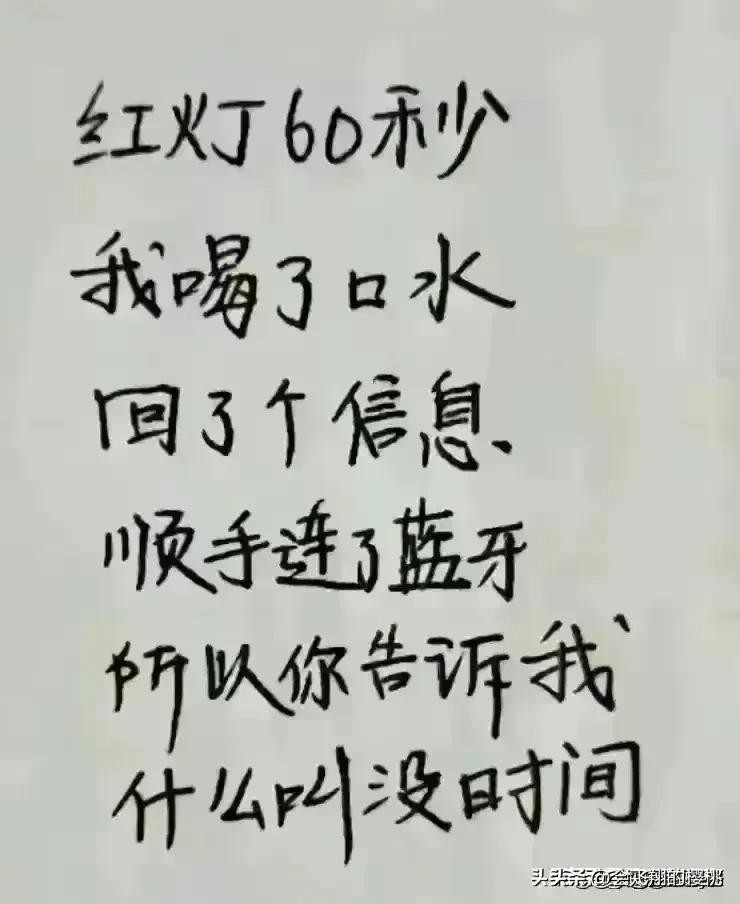 红灯60秒
我喝了口水
回了个信息、
顺手连了蓝牙
所以你告诉我
什么叫没时间